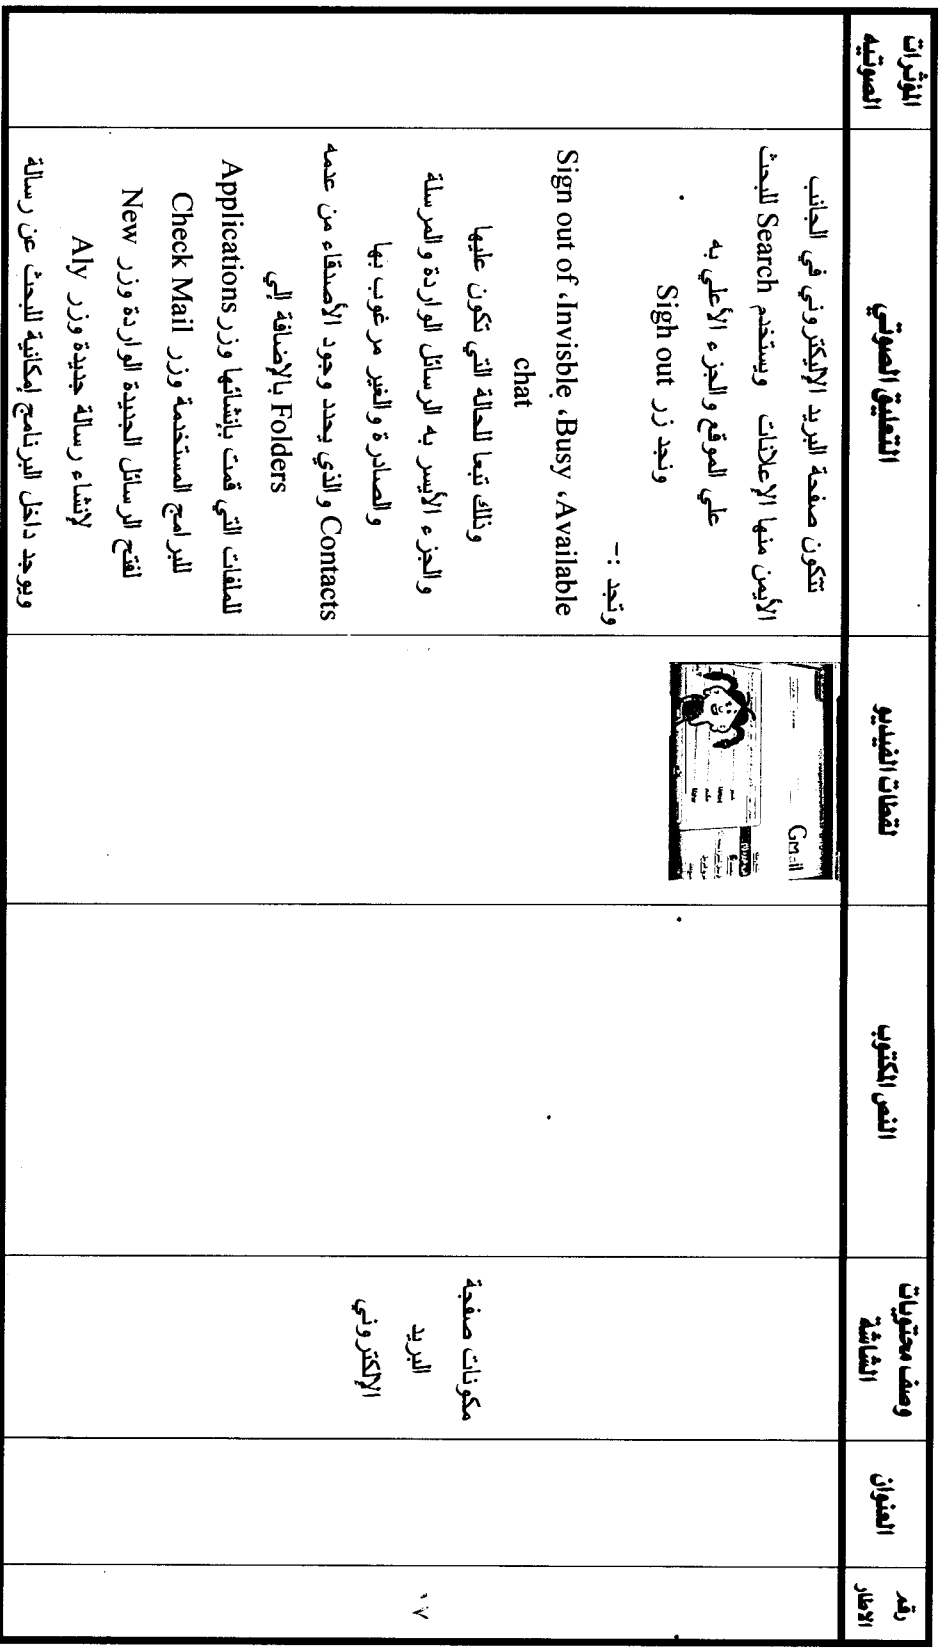 رقم
الاطار
العنوان
وصف محتويات
الشاشة
النص المكتوب
لقطات الفيديو
التعليق الصوتي
المؤثرات
الصوتيه
١٧
مكونات صفحة
البريد
الإلكتروني
Gmail
تتكون صفحة البريد الإليكتروني في الجانب
الأيمن منها الإعلانات ويستخدم Search للبحث
علي الموقع والجزء الأعلي به
ونجد زر Sigh out
وتجد :-
Sign out of ،Invisble ،Busy ،Available
chat
وذلك تبعا للحالة التي تكون عليها
والجزء الأيسر به الرسائل الواردة والمرسلة
والصادرة والغير مرغوب بها
Contacts والذي يحدد وجود الأصدقاء من عدمه
بالإضافة إلي Folders
للملفات التي قمت بإنشائها وزر Applications
للبرامج المستخدمة وزر Check Mail
لفتح الرسائل الجديدة الواردة وزر New
لإنشاء رسالة جديدة وزر Aly
ويوجد داخل البرنامج إمكانية للبحث عن رسالة